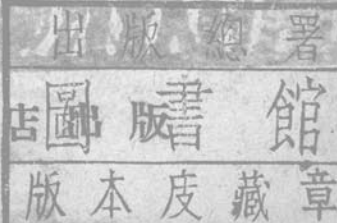 出版總署
圖書館
店出版
版本庋藏章